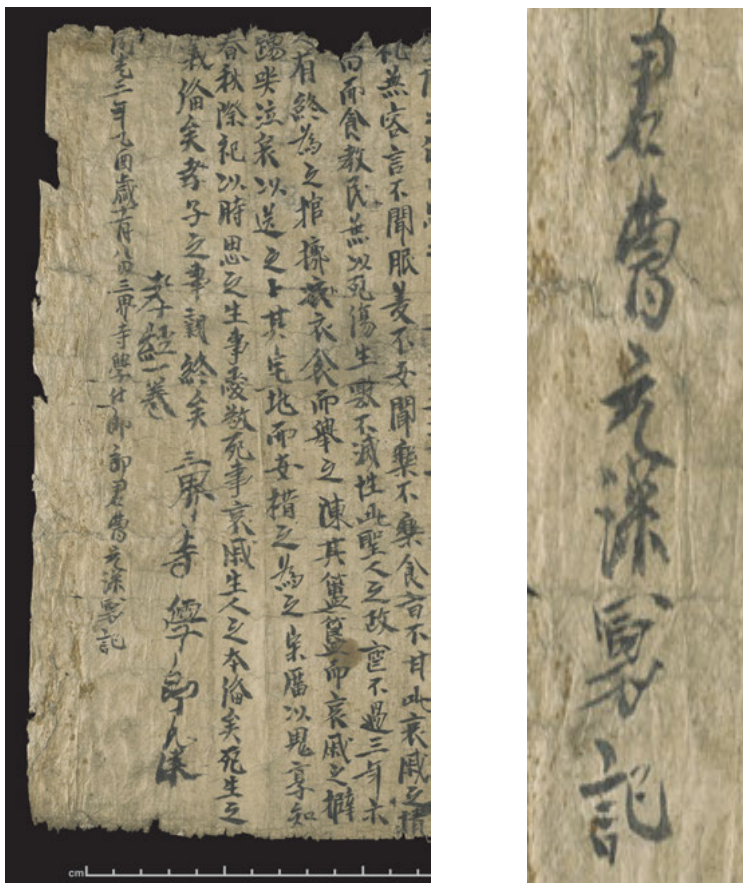 礼無容言不聞服美不安聞樂不樂食旨不甘此哀戚之情
而食教民無以死傷生毀不滅性此聖人之政喪不過三年示
有終為之棺椁衣食而舉之陳其簠簋而哀戚之擗
踊哭泣哀以送之卜其宅地而安措之為之宗廟以鬼享
春秋際祀以時思之生事愛敬死事哀戚生人之本俻矣死生之
義俻矣孝子之事親終矣 三界寺學郎元深
孝經一卷
同光三年乙酉歲十一月八日三界寺學仕郎郎君曹元深寫記
cm
君曹元深寫記